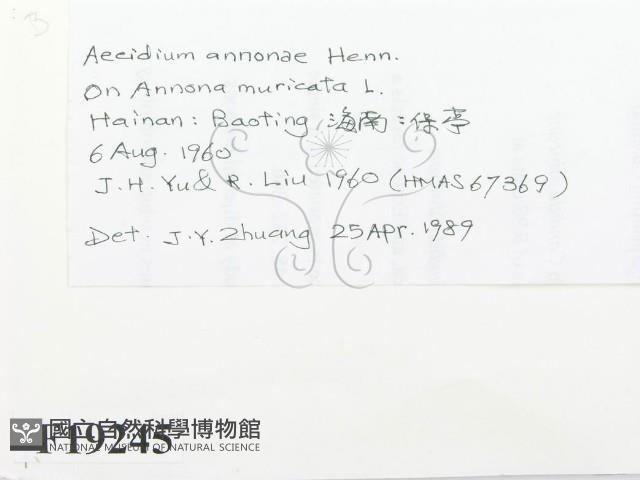 B
Aecidium annonae Henn.
On Annona muricata L.
Hainan: Baoting, 海南:保亭
6 Aug. 1960
J.H. Yu & R. Liu 1960 (HMAS 67369)
Det. J.Y. Zhuang 25 Apr. 1989
國立自然科學博物館
NATIONAL MUSEUM OF NATURAL SCIENCE
F19245